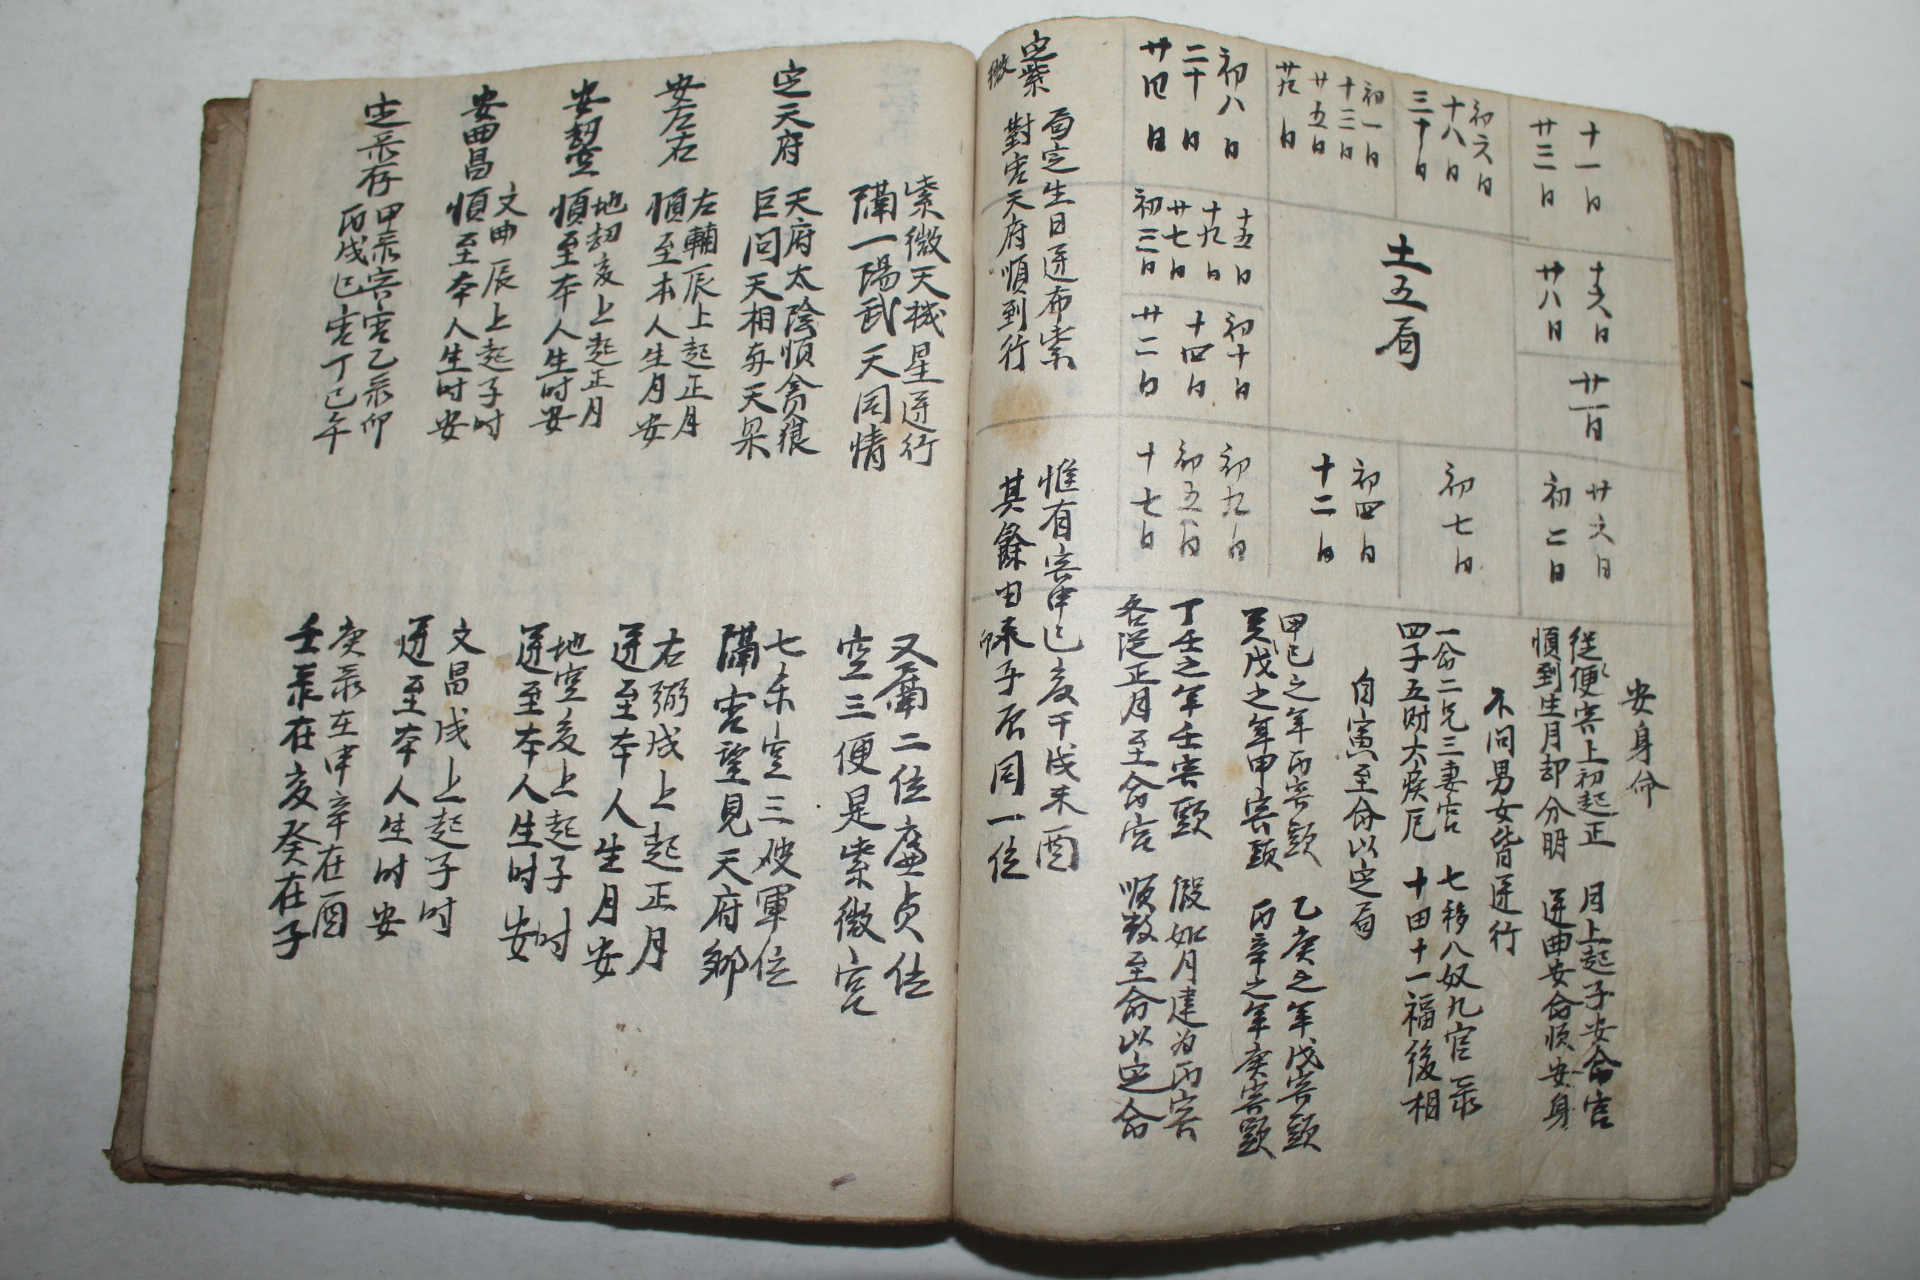 十一日
廿三日
初六日
十八日
三十日
初一日
十三日
廿五日
廿九日
初八日
二十日
廿四日
十六日
廿八日
土五局
十五日
十九日
廿七日
初三日
廿一日
初十日
十四日
廿二日
廿六日
初二日
初七日
初四日
十二日
初九日
初五日
十七日
安身命
從便寅上初起正 月上起子安命宮
順到生月却分明 逆曲安命順安身
不問男女皆逆行
一命二兄三妻宮 七移八奴九官彔
四子五財六疾厄 十田十一福後相
自寅至命以定局
甲己之年丙寅頭 乙庚之年戊寅頭
癸戊之年甲寅頭 丙辛之年庚寅頭
丁壬之年壬寅頭 假如月建為丙寅
各從正月至命宮 順数至命以定命
定紫微
局定生日逆布紫 惟有寅申巳亥干戌未酉
對宮天府順到行 其餘由未卯子辰同一位
紫微天機星逆行 又隔二位廉貞位
隔一陽武天同情 空三便是紫微宮
定天府
天府太陰順貪狼 七未定三破軍位
巨門天相與天梁 隔宮望見天府鄉
安左右
左輔辰上起正月 右弼戌上起正月
順至本人生月安 逆至本人生月安
安刼空
地刼亥上起正月 地空亥上起子时
順至本人生时安 逆至本人生时安
安曲昌
文曲辰上起子时 文昌戌上起子时
順至本人生时安 逆至本人生时安
定彔存
甲彔寅宮乙彔卯 庚彔在申辛在酉
丙戊巳宮丁己午 壬彔在亥癸在子